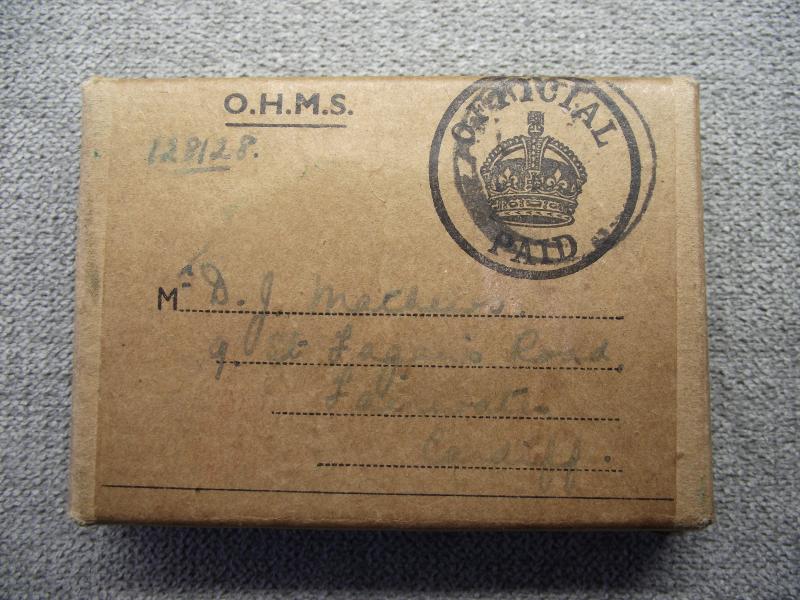 O.H.M.S.
OFFICIAL
PAID
128128.
Mr D. J. Mathews.
9. St Fagan's Road,
Fairwater.
Cardiff.